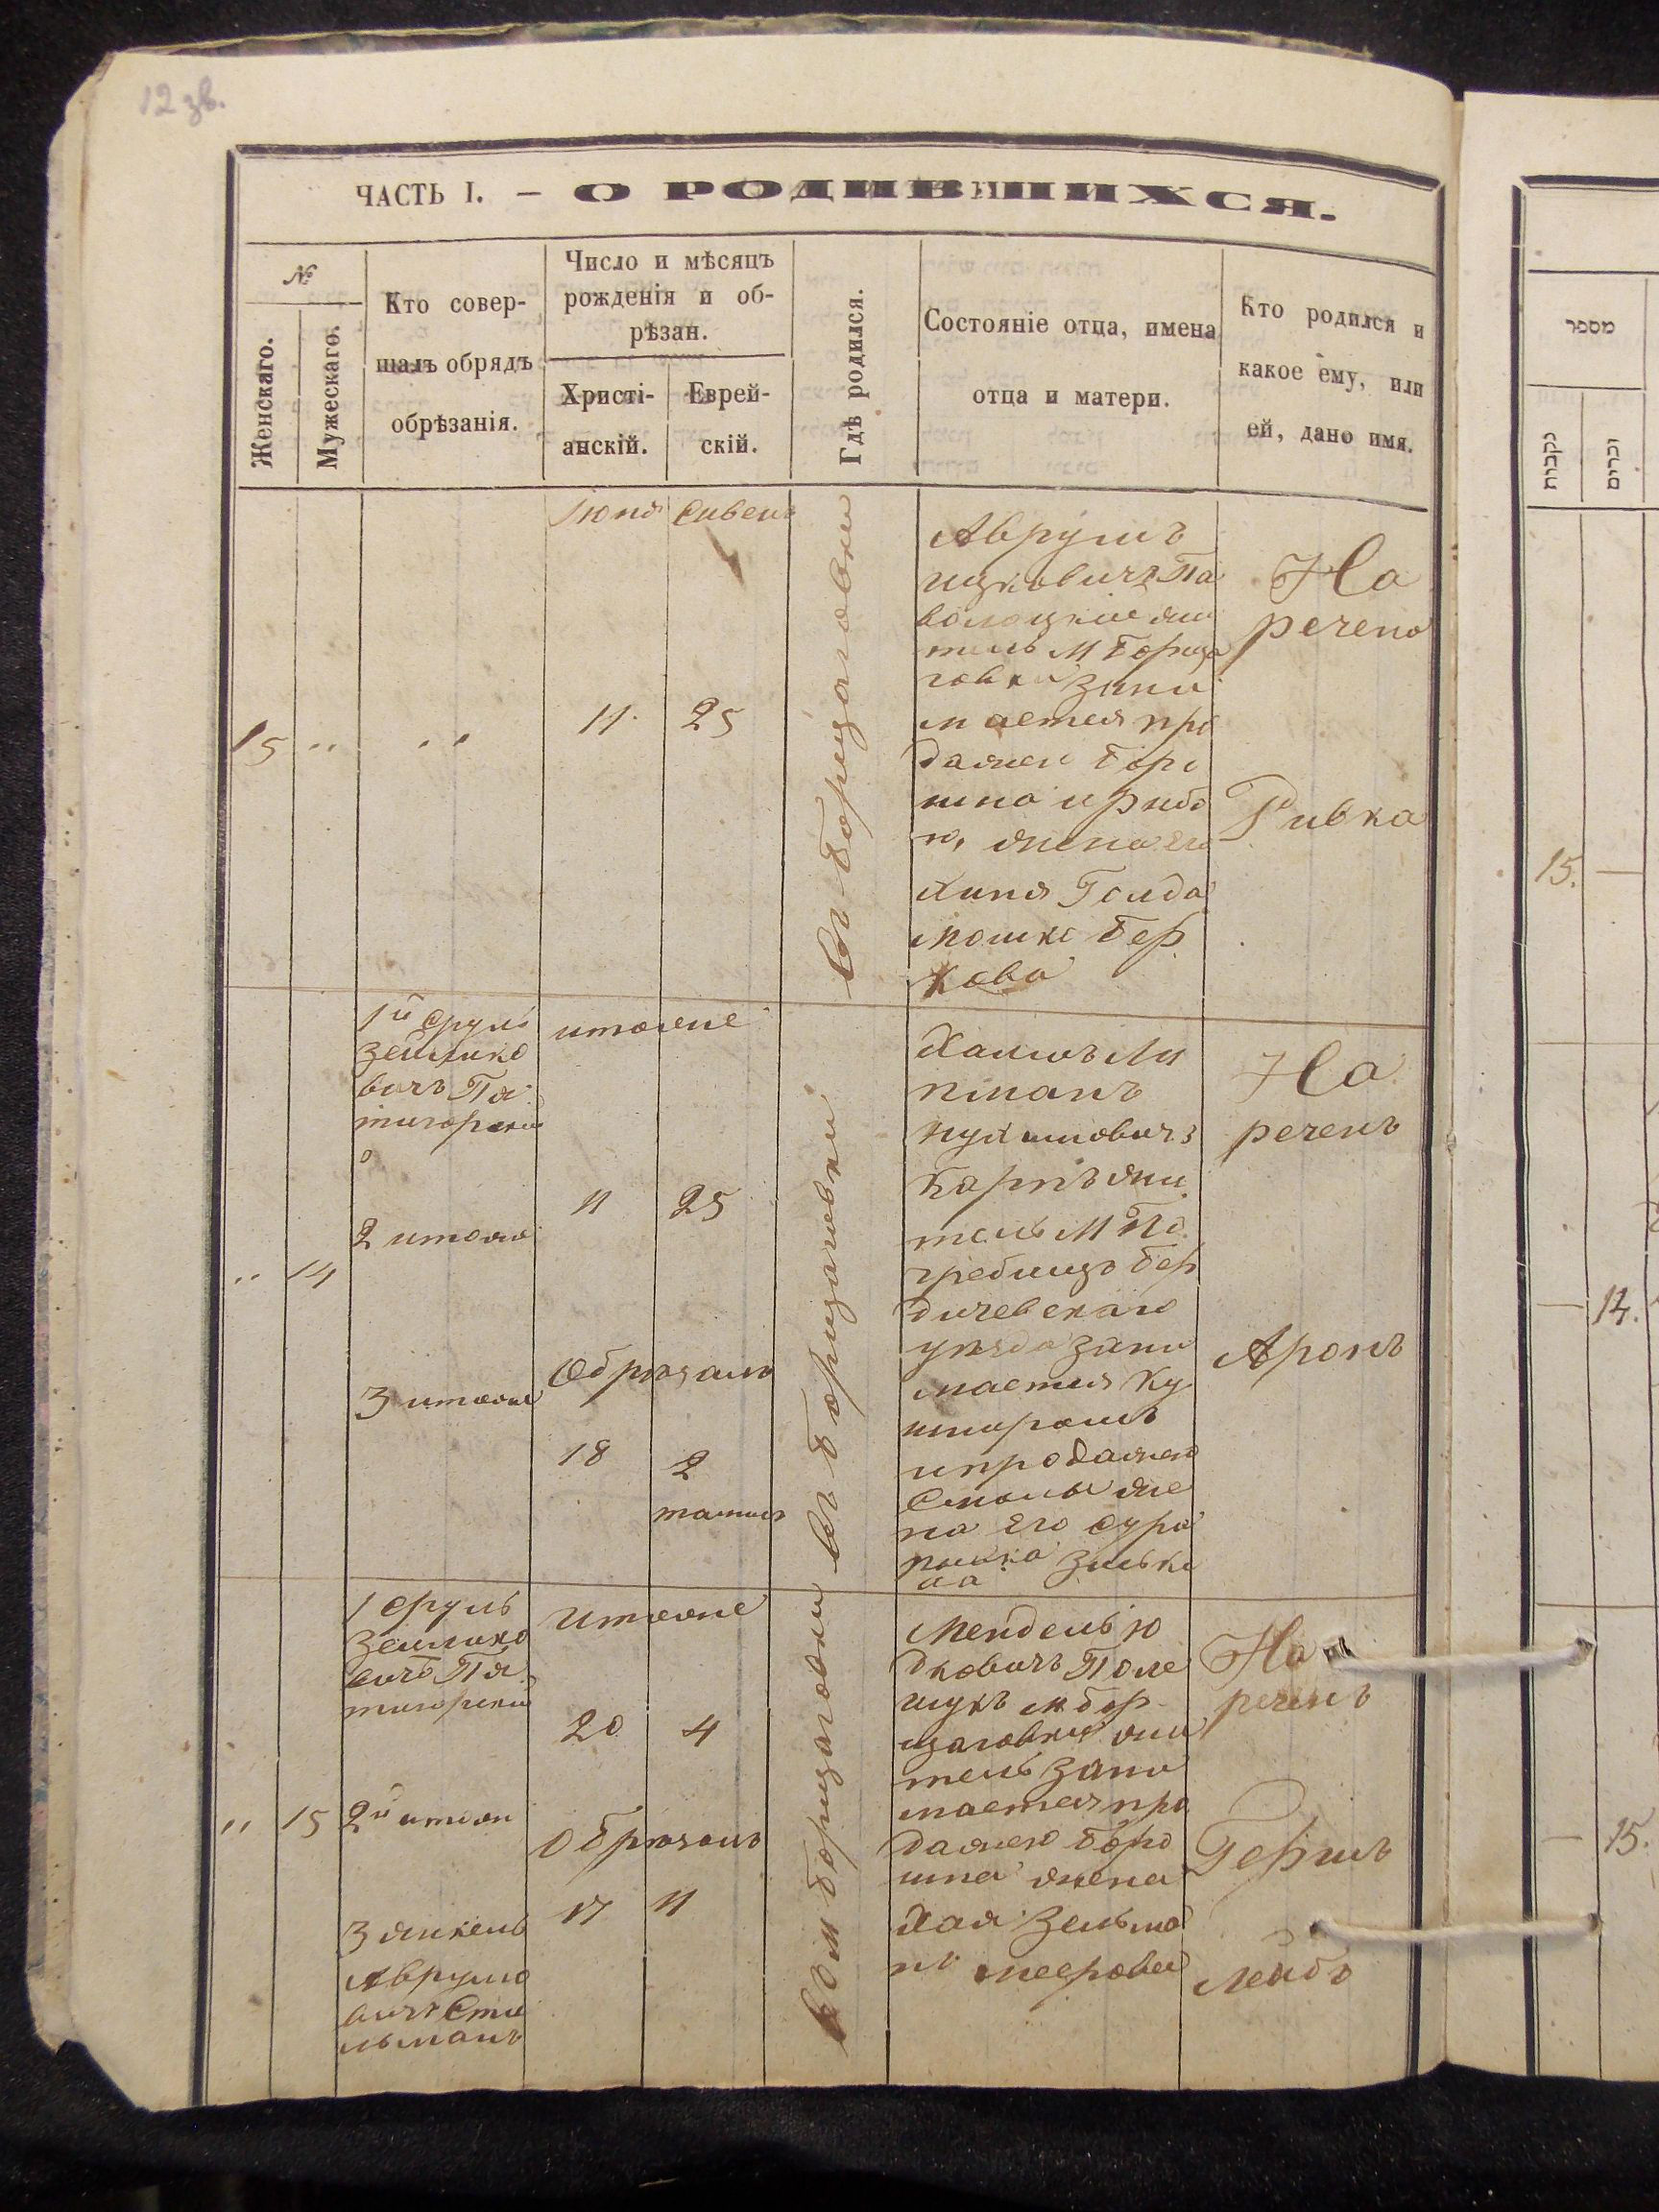 12 зв.
ЧАСТЬ I. – О РОДИВШИХСЯ.
№
Женскаго.
Мужескаго.
Кто совер-
шалъ обрядъ
обрѣзанія.
Число и мѣсяцъ
рожденія и об-
рѣзан.
Христі-
анскій.
Еврей-
скій.
Гдѣ родился.
Состояніе отца, имена
отца и матери.
Кто родился и
какое ему, или
ей, дано имя.
Іюня
Сивень
15
„
„
11
25
въ борщаговки
Аврумъ
ицковичъ Па
волоцкіе жи
тель М борща
говки зани
мается про
дажею боро
шна и рибо
ю, жена его
Хиня Голда
мошко бер
кова
На
речено
Ривка
„
14
1й Сруль
Зейлико
вичъ Пя
тигорски
2 итоже
3 итоже
итоже
11
25
Обрезанъ
18
2
тамизъ
въ борщаговки
Хаимъ Ли
пманъ
нухимовичъ
Карпъ жи
тель М По
гребищъ бер
дичевскаго
уезда зани
мается Ку
шнромъ
ипродажею
Смолы же
на его сура
зилька
На
реченъ
Аронъ
„
15
1 Сруль
Зейлико
вичъ Пя
тигорски
2й итож
3 янкель
Аврумо
вичъ Сти
льманъ
Итоже
20
4
Обрезанъ
17
11
борщаговки
Мендель ю
дковичъ Поле
щукъ м бор
щаговки жи
тель зани
мается про
дажею боро
шна жена
Хая Зельма
меерова
На
реченъ
Гершъ
Лейбъ
מספר
נקבות
זכרים
15. —
— 14.
— 15.